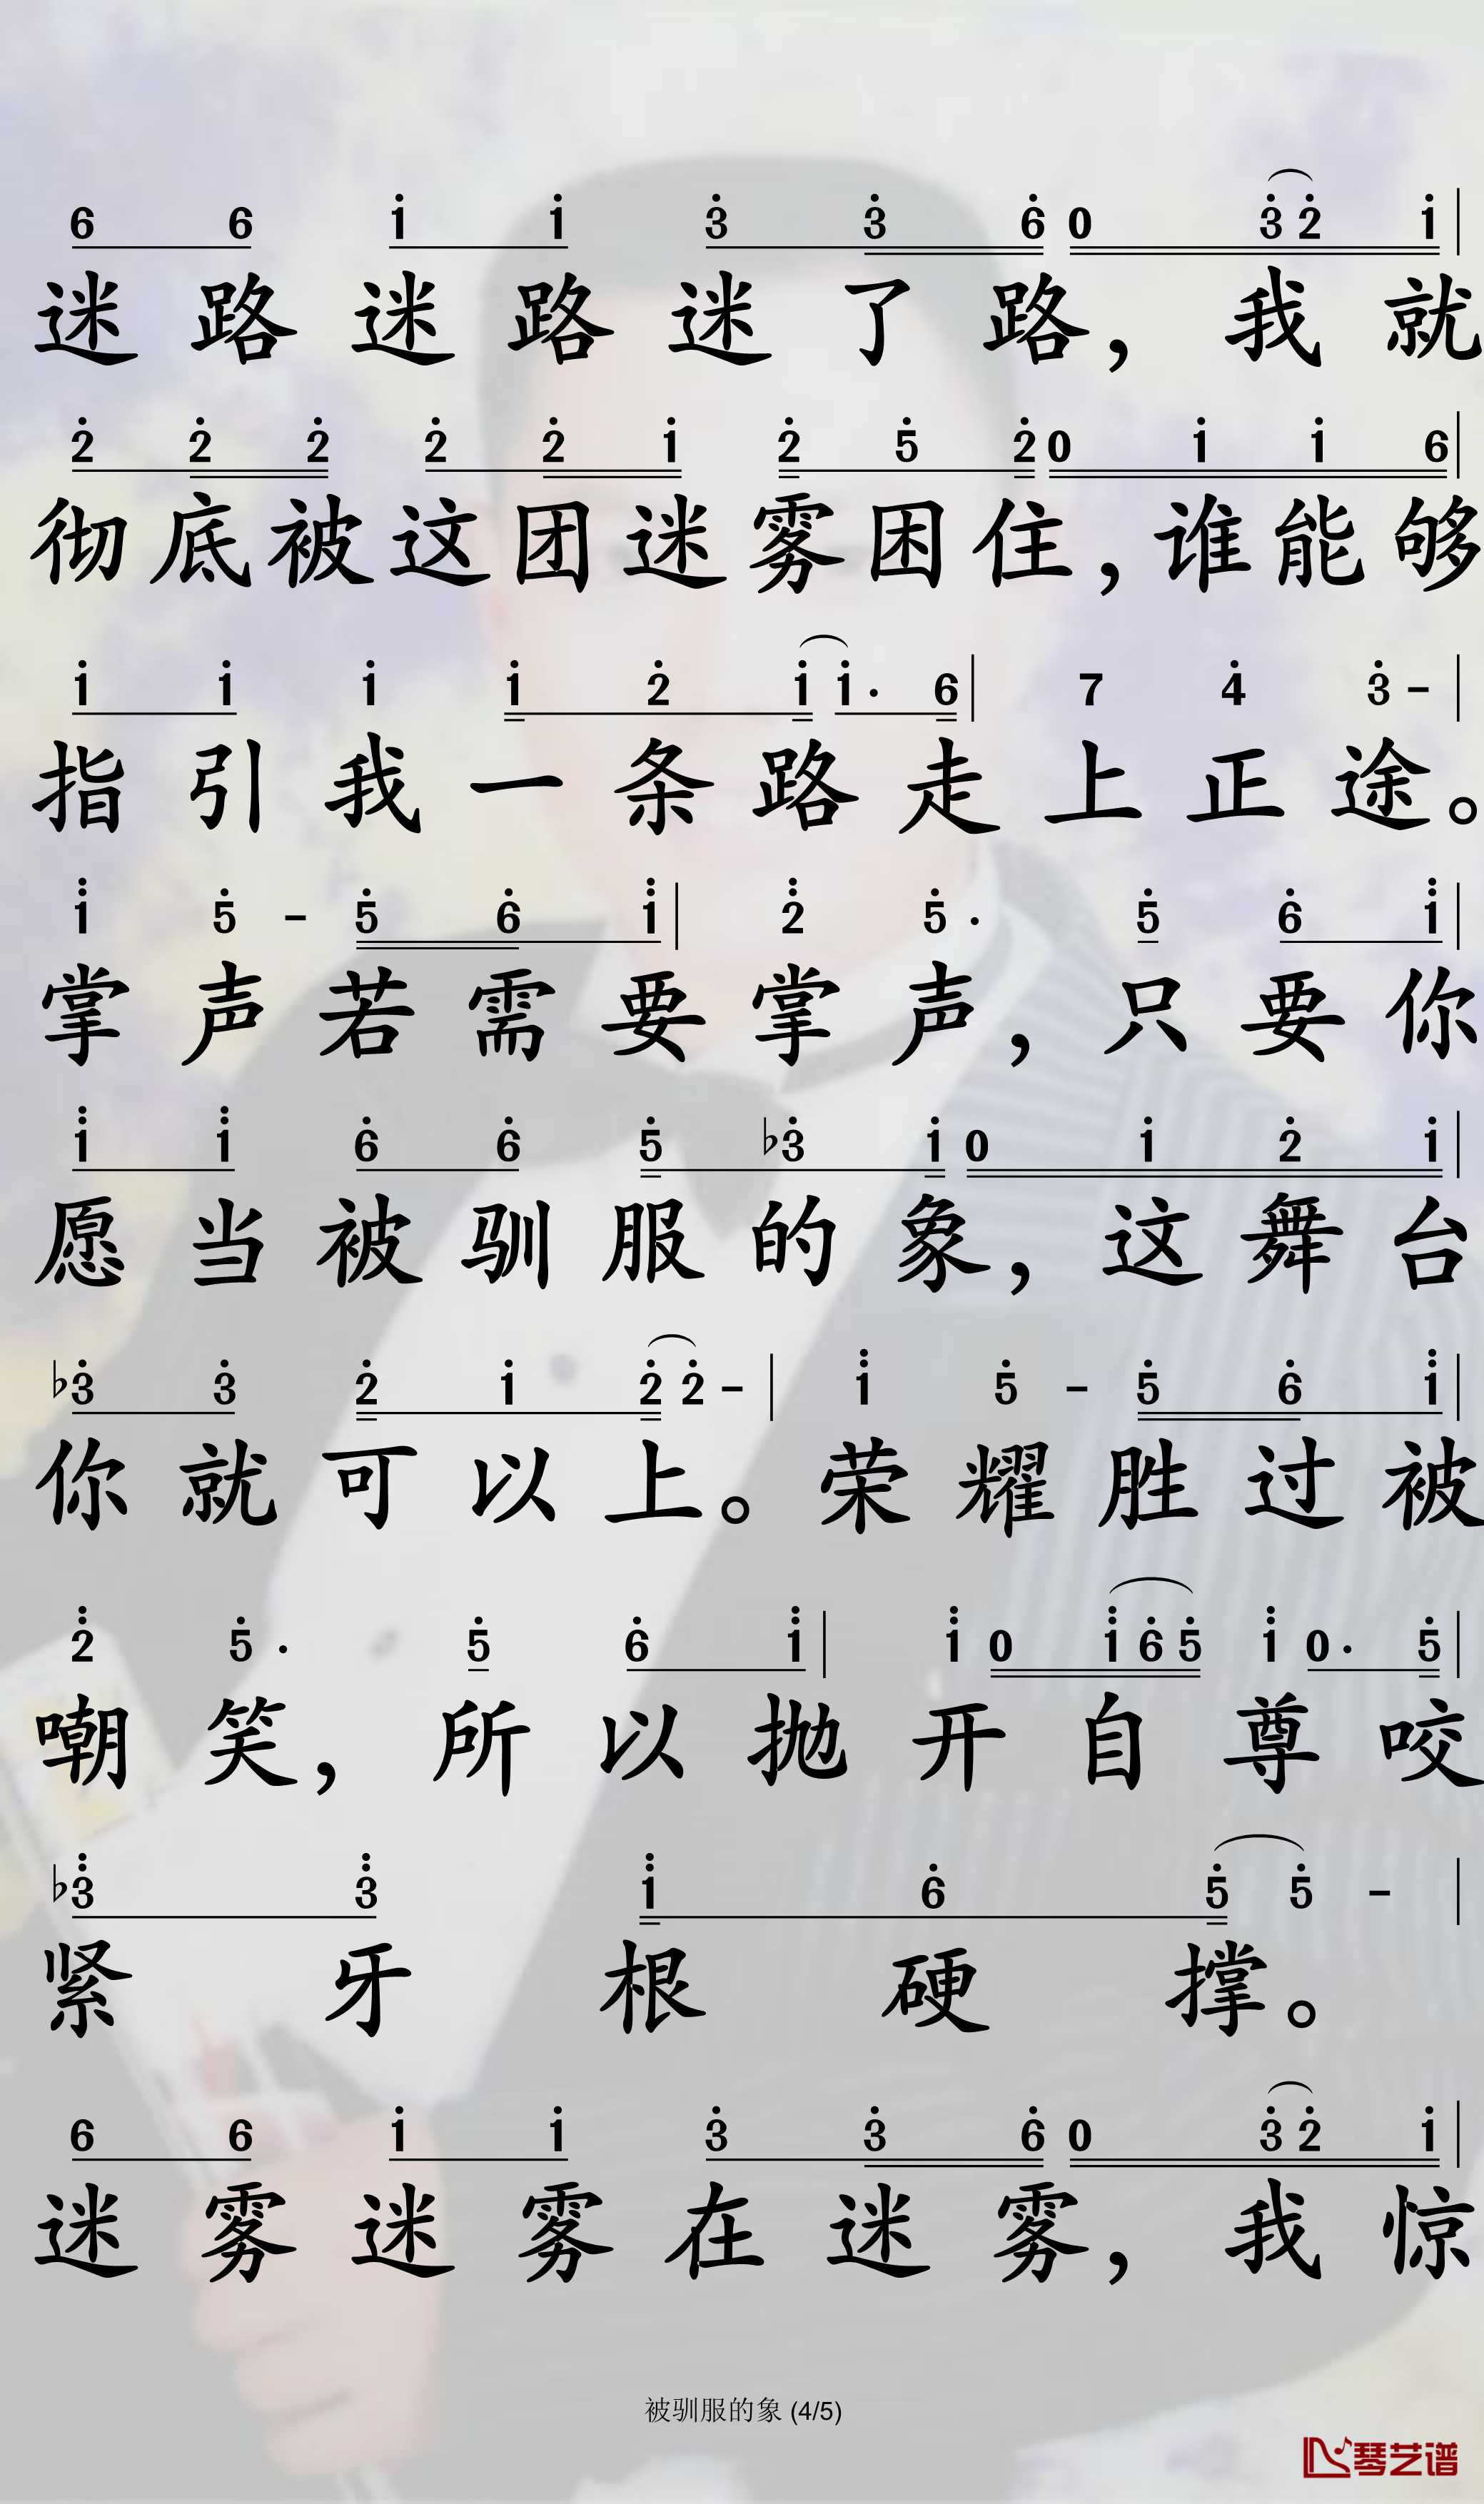 6 6 i i 3 3 6 0 3 2 i
迷路迷路迷了路，我就
2 2 2 2 2 i 2 5 2 0 i i 6
彻底被这团迷雾困住，谁能够
i i i i 2 i i · 6 | 7 4 3 – |
指引我一条路走上正途。
i 5 – 5 6 i | 2 5 · 5 6 i |
掌声若需要掌声，只要你
i i 6 6 5 ♭3 i 0 i 2 i |
愿当被驯服的象，这舞台
♭3 3 2 i 2 2 – | i 5 – 5 6 i |
你就可以上。荣耀胜过被
2 5 · 5 6 i | i 0 i 6 5 i 0 · 5 |
嘲笑，所以抛开自尊咬
♭3 3 i 6 5 5 – |
紧牙根硬撑。
6 6 i i 3 3 6 0 3 2 i |
迷雾迷雾在迷雾，我惊
被驯服的象 (4/5)
琴艺谱